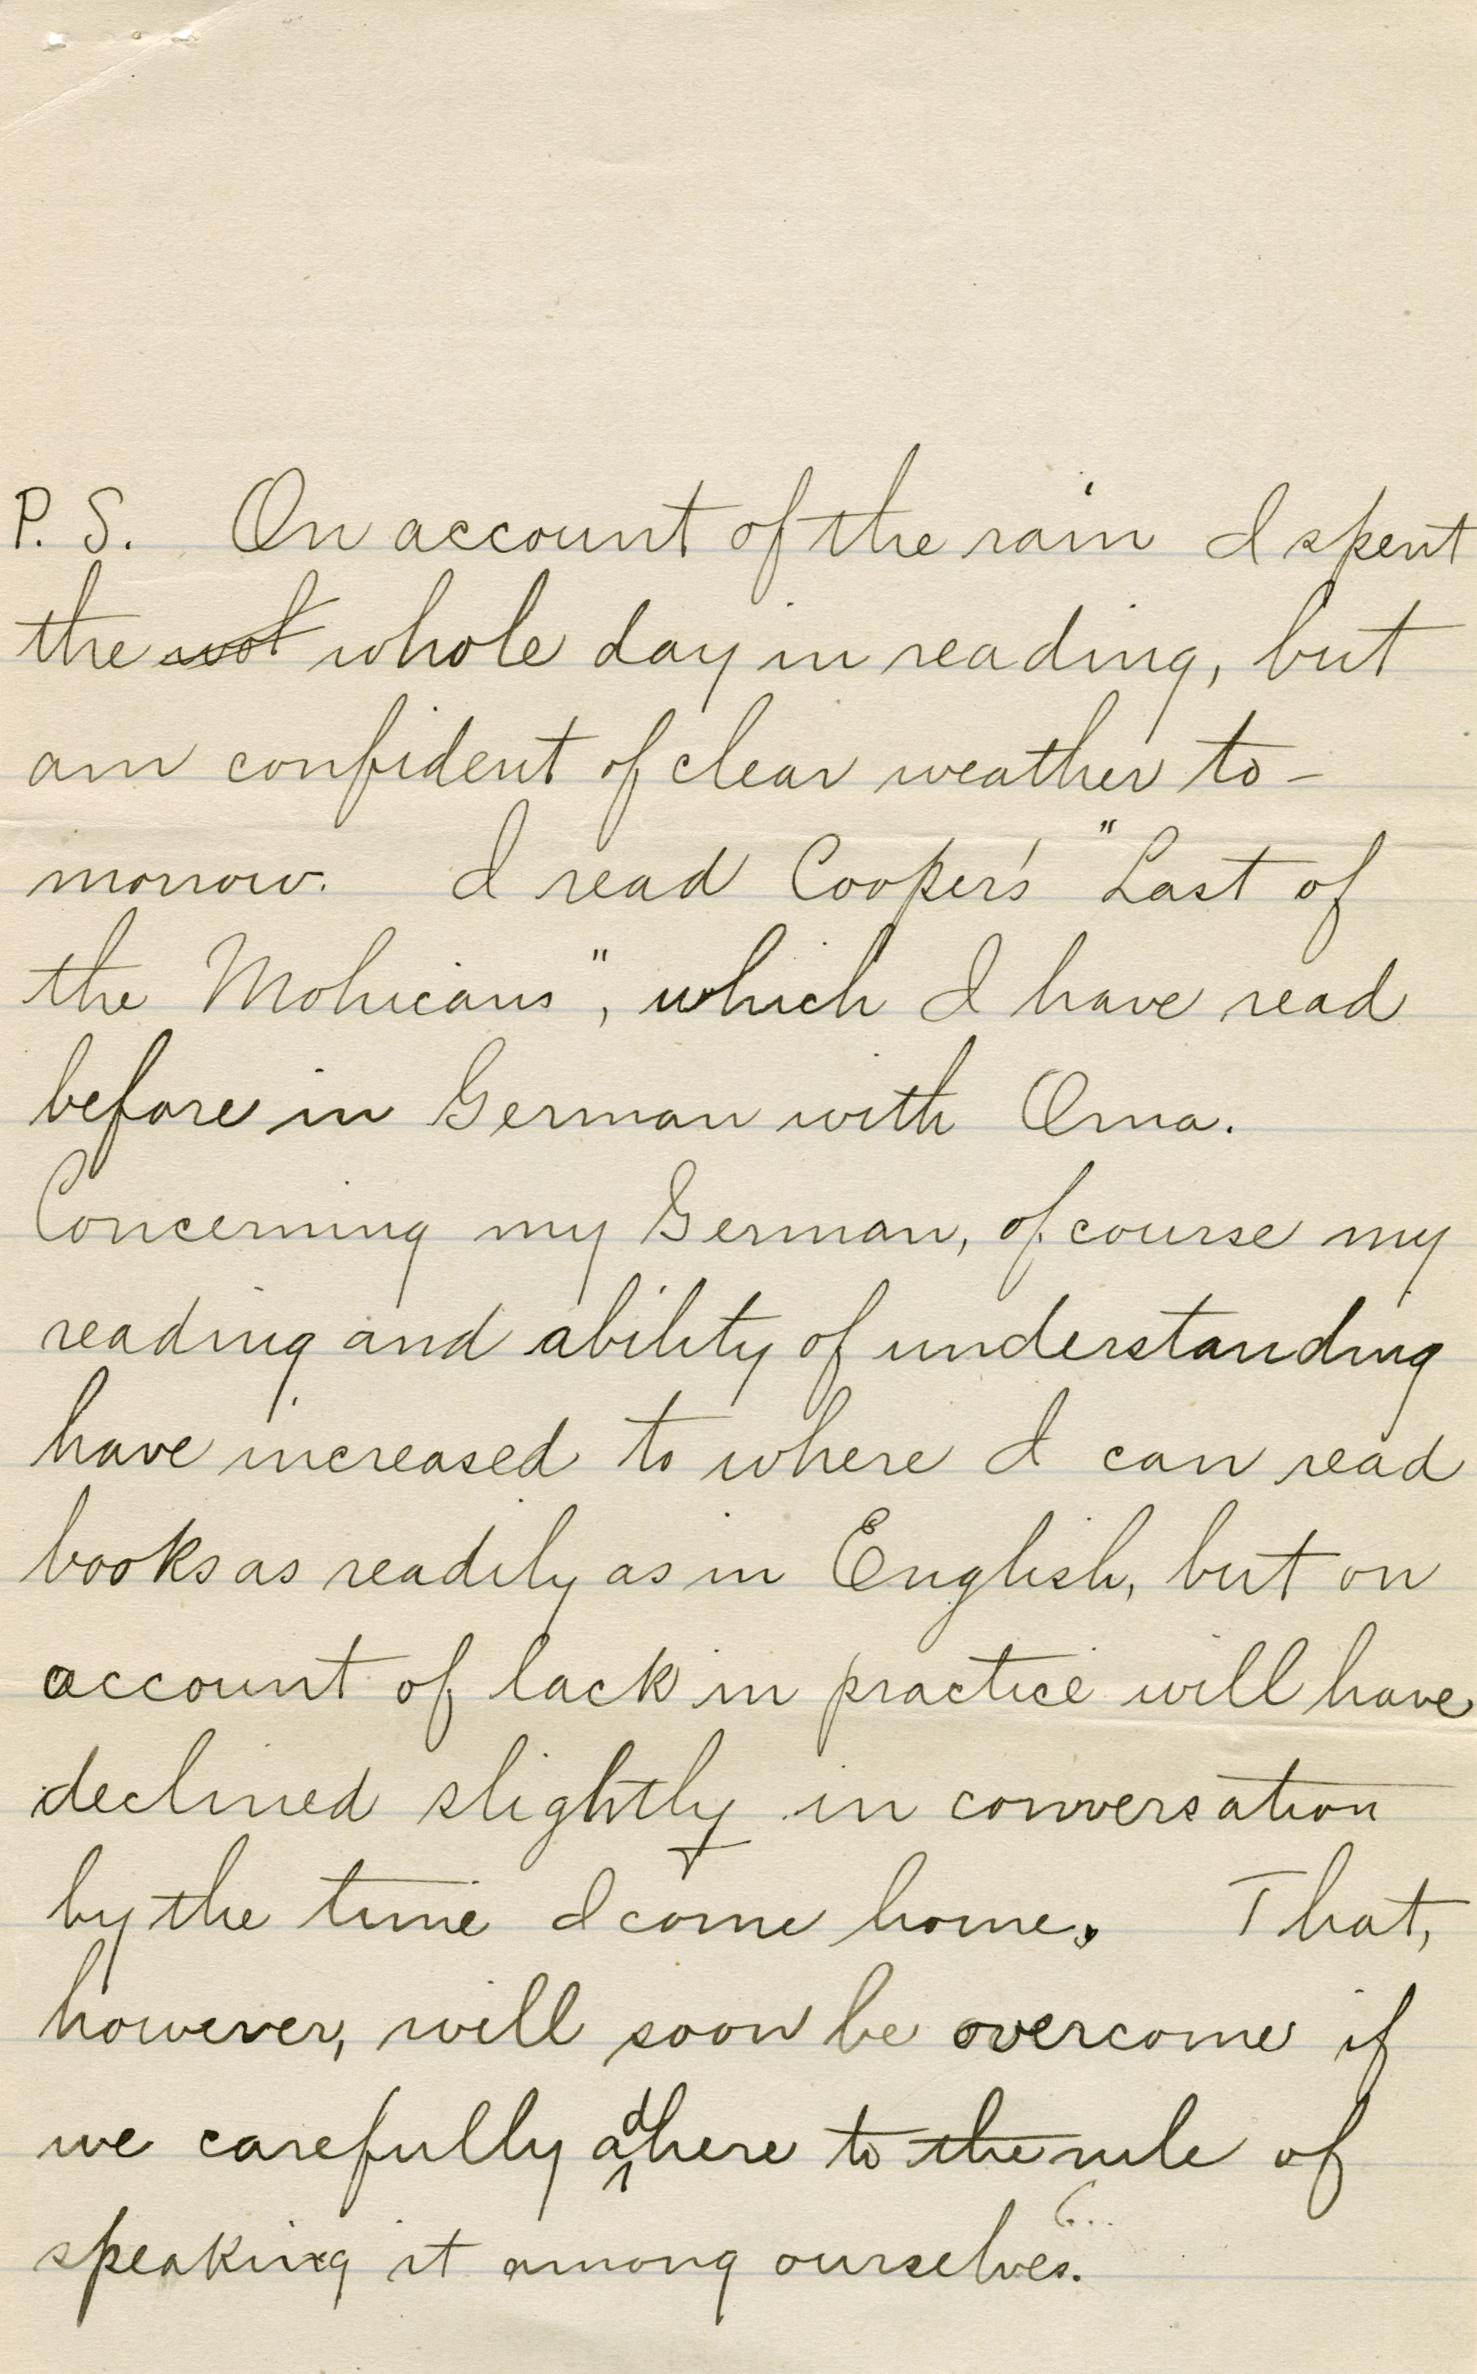 P. S. On account of the rain I spent
the whole day in reading, but
am confident of clear weather to-
morrow. I read Cooper's "Last of
the Mohicans", which I have read
before in German with Oma.
Concerning my German, of course my
reading and ability of understanding
have increased to where I can read
books as readily as in English, but on
account of lack in practice will have
declined slightly in conversation
by the time I come home. That,
however, will soon be overcome if
we carefully adhere to the rule of
speaking it among ourselves.